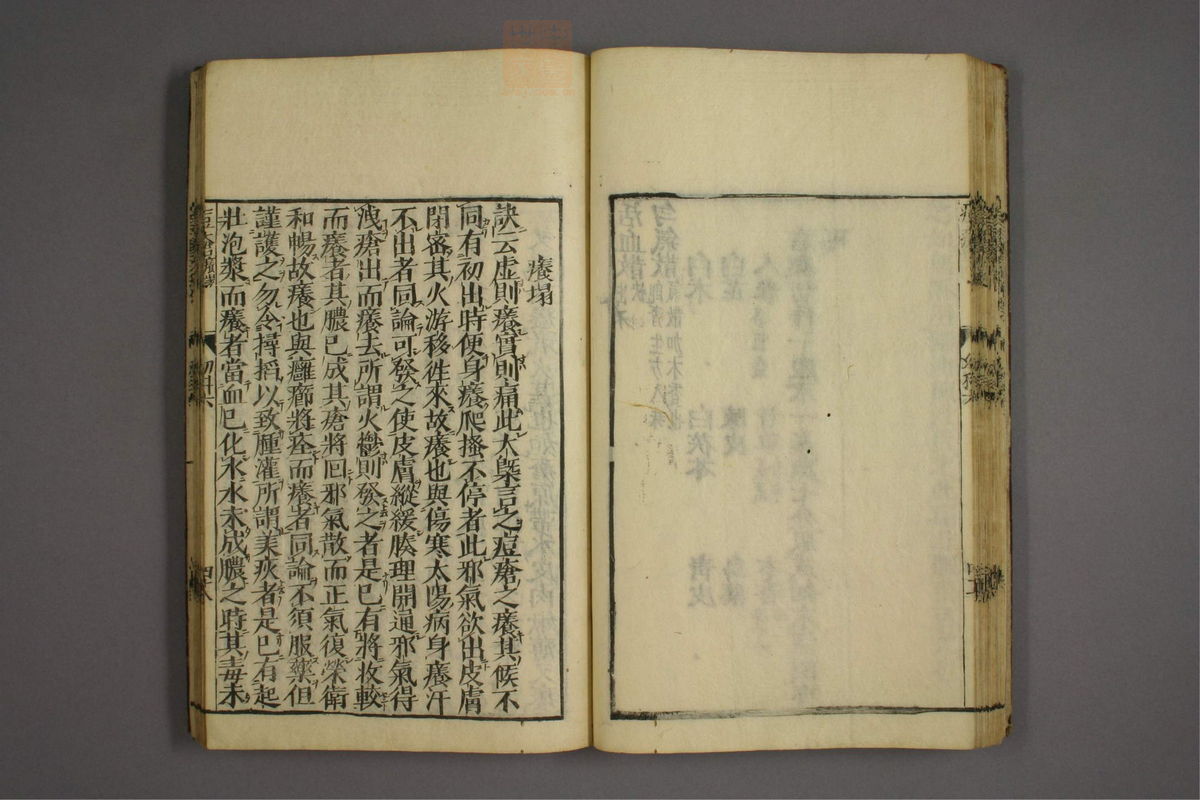 癢塌
訣云虛則癢實則痛此大槩言之痘瘡之癢其候不
同有初出時便身癢爬搔不停者此邪氣欲出皮膚
閉密其火游移徃來故癢也與傷寒太陽病身癢汗
不出者同論可發之使皮膚縱緩腠理開通邪氣得
洩瘡出而癢去所謂火鬱則發之者是已有將收較
而癢者其膿已成其瘡將回邪氣散而正氣復榮衛
和暢故癢也與癰癤將痊而癢者同論不須服藥但
謹護之勿令撏搯以致腫灌所謂美疢者是已有起
壯泡漿而癢者當血已化水水未成膿之時其毒未